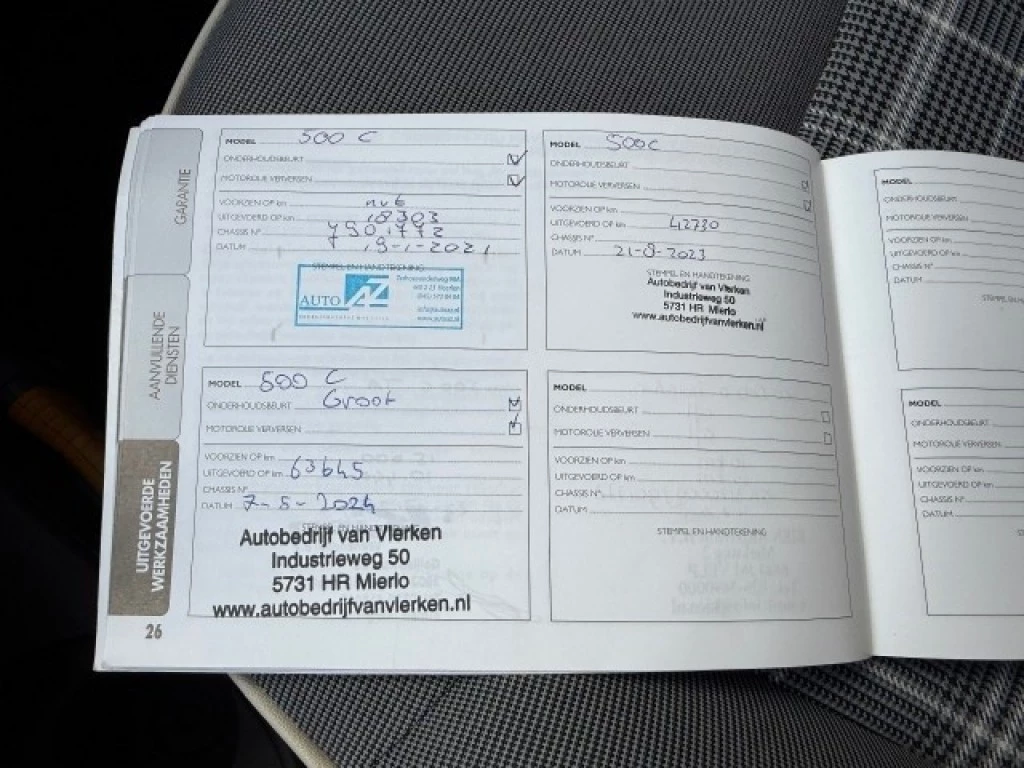 GARANTIE
AANVULLENDE
DIENSTEN
UITGEVOERDE
WERKZAAMHEDEN
26
MODEL 500 C
ONDERHOUDSBEURT
MOTOROLIE VERVERSEN
VOORZIEN OP km
UITGEVOERD OP km 18303
CHASSIS N°
DATUM 19-1-2021
STEMPEL EN HANDTEKENING
AUTO AZ
MODEL 500C
ONDERHOUDSBEURT
MOTOROLIE VERVERSEN
VOORZIEN OP km
UITGEVOERD OP km 42730
CHASSIS N°
DATUM 21-8-2023
STEMPEL EN HANDTEKENING
Autobedrijf van Vlerken
Industrieweg 50
5731 HR Mierlo
www.autobedrijfvanvlerken.nl
MODEL 500 C
ONDERHOUDSBEURT Groot
MOTOROLIE VERVERSEN
VOORZIEN OP km
UITGEVOERD OP km 63645
CHASSIS N°
DATUM 7-5-2024
STEMPEL EN HANDTEKENING
Autobedrijf van Vlerken
Industrieweg 50
5731 HR Mierlo
www.autobedrijfvanvlerken.nl
MODEL
ONDERHOUDSBEURT
MOTOROLIE VERVERSEN
VOORZIEN OP km
UITGEVOERD OP km
CHASSIS N°
DATUM
STEMPEL EN HANDTEKENING
MODEL
ONDERHOUDSBEURT
MOTOROLIE VERVERSEN
VOORZIEN OP km
UITGEVOERD OP km
CHASSIS N°
DATUM
MODEL
ONDERHOUDSBEURT
MOTOROLIE VERVERSEN
VOORZIEN OP km
UITGEVOERD OP km
CHASSIS N°
DATUM